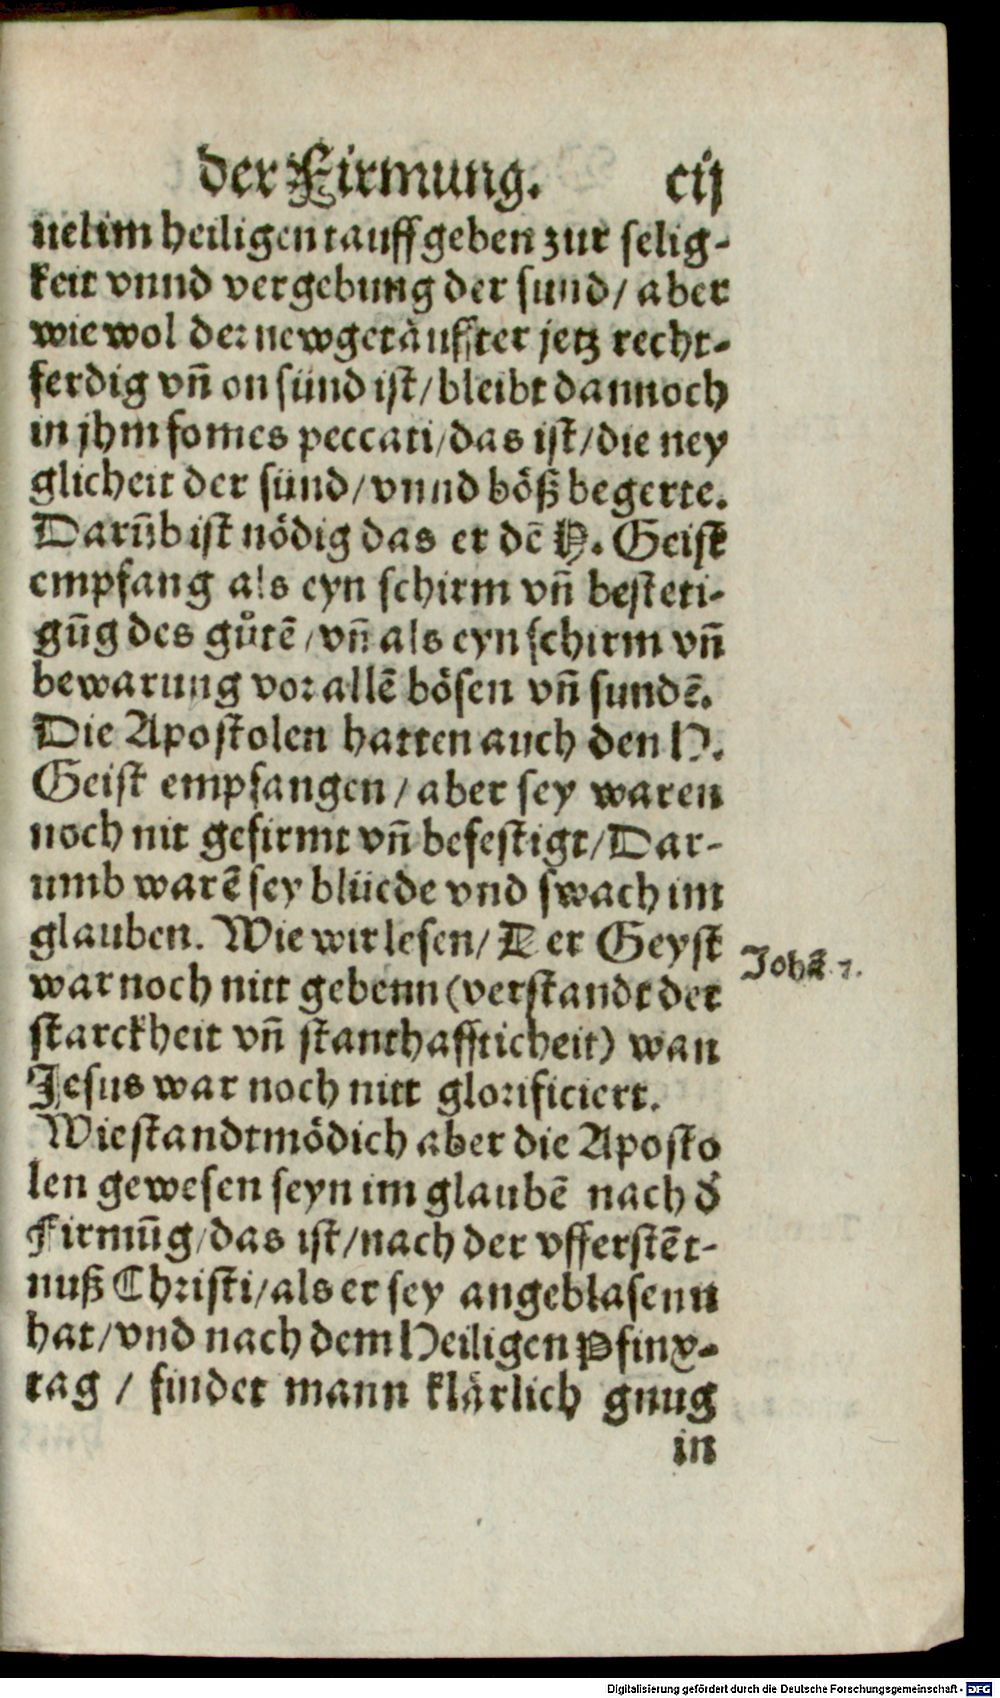 der Firmung. cij
uel im heiligen tauff geben zur selig-
keit vnnd vergebung der sund/ aber
wie wol der newgetäuffter jetz recht-
ferdig vn̄ on sünd ist/ bleibt dannoch
in jhm fomes peccati/ das ist/ die ney
glicheit der sünd/ vnnd böß begerte.
Darūb ist nödig das er dē H. Geist
empfang als eyn schirm vn̄ besteti-
gūg des gůtē/ vn̄ als eyn schirm vn̄
bewarung vor allē bösen vn̄ sundē.
Die Apostolen hatten auch den H.
Geist empfangen/ aber sey waren
noch nit gefirmt vn̄ befestigt/ Dar-
umb warē sey blüede vnd swach im
glauben. Wie wir lesen/ Der Geyst
Johā 7.
war noch nitt gebenn (verstandt der
starckheit vn̄ stanthaffticheit) wan
Jesus war noch nitt glorificiert.
Wie standtmödich aber die Aposto
len gewesen seyn im glaubē nach d̄
Firmūg/ das ist/ nach der vfferstēt-
nuß Christi/ als er sey angeblasenn
hat/ vnd nach dem Heiligen Pfinx-
tag / findet mann klärlich gnug
in
Digitalisierung gefördert durch die Deutsche Forschungsgemeinschaft - DFG